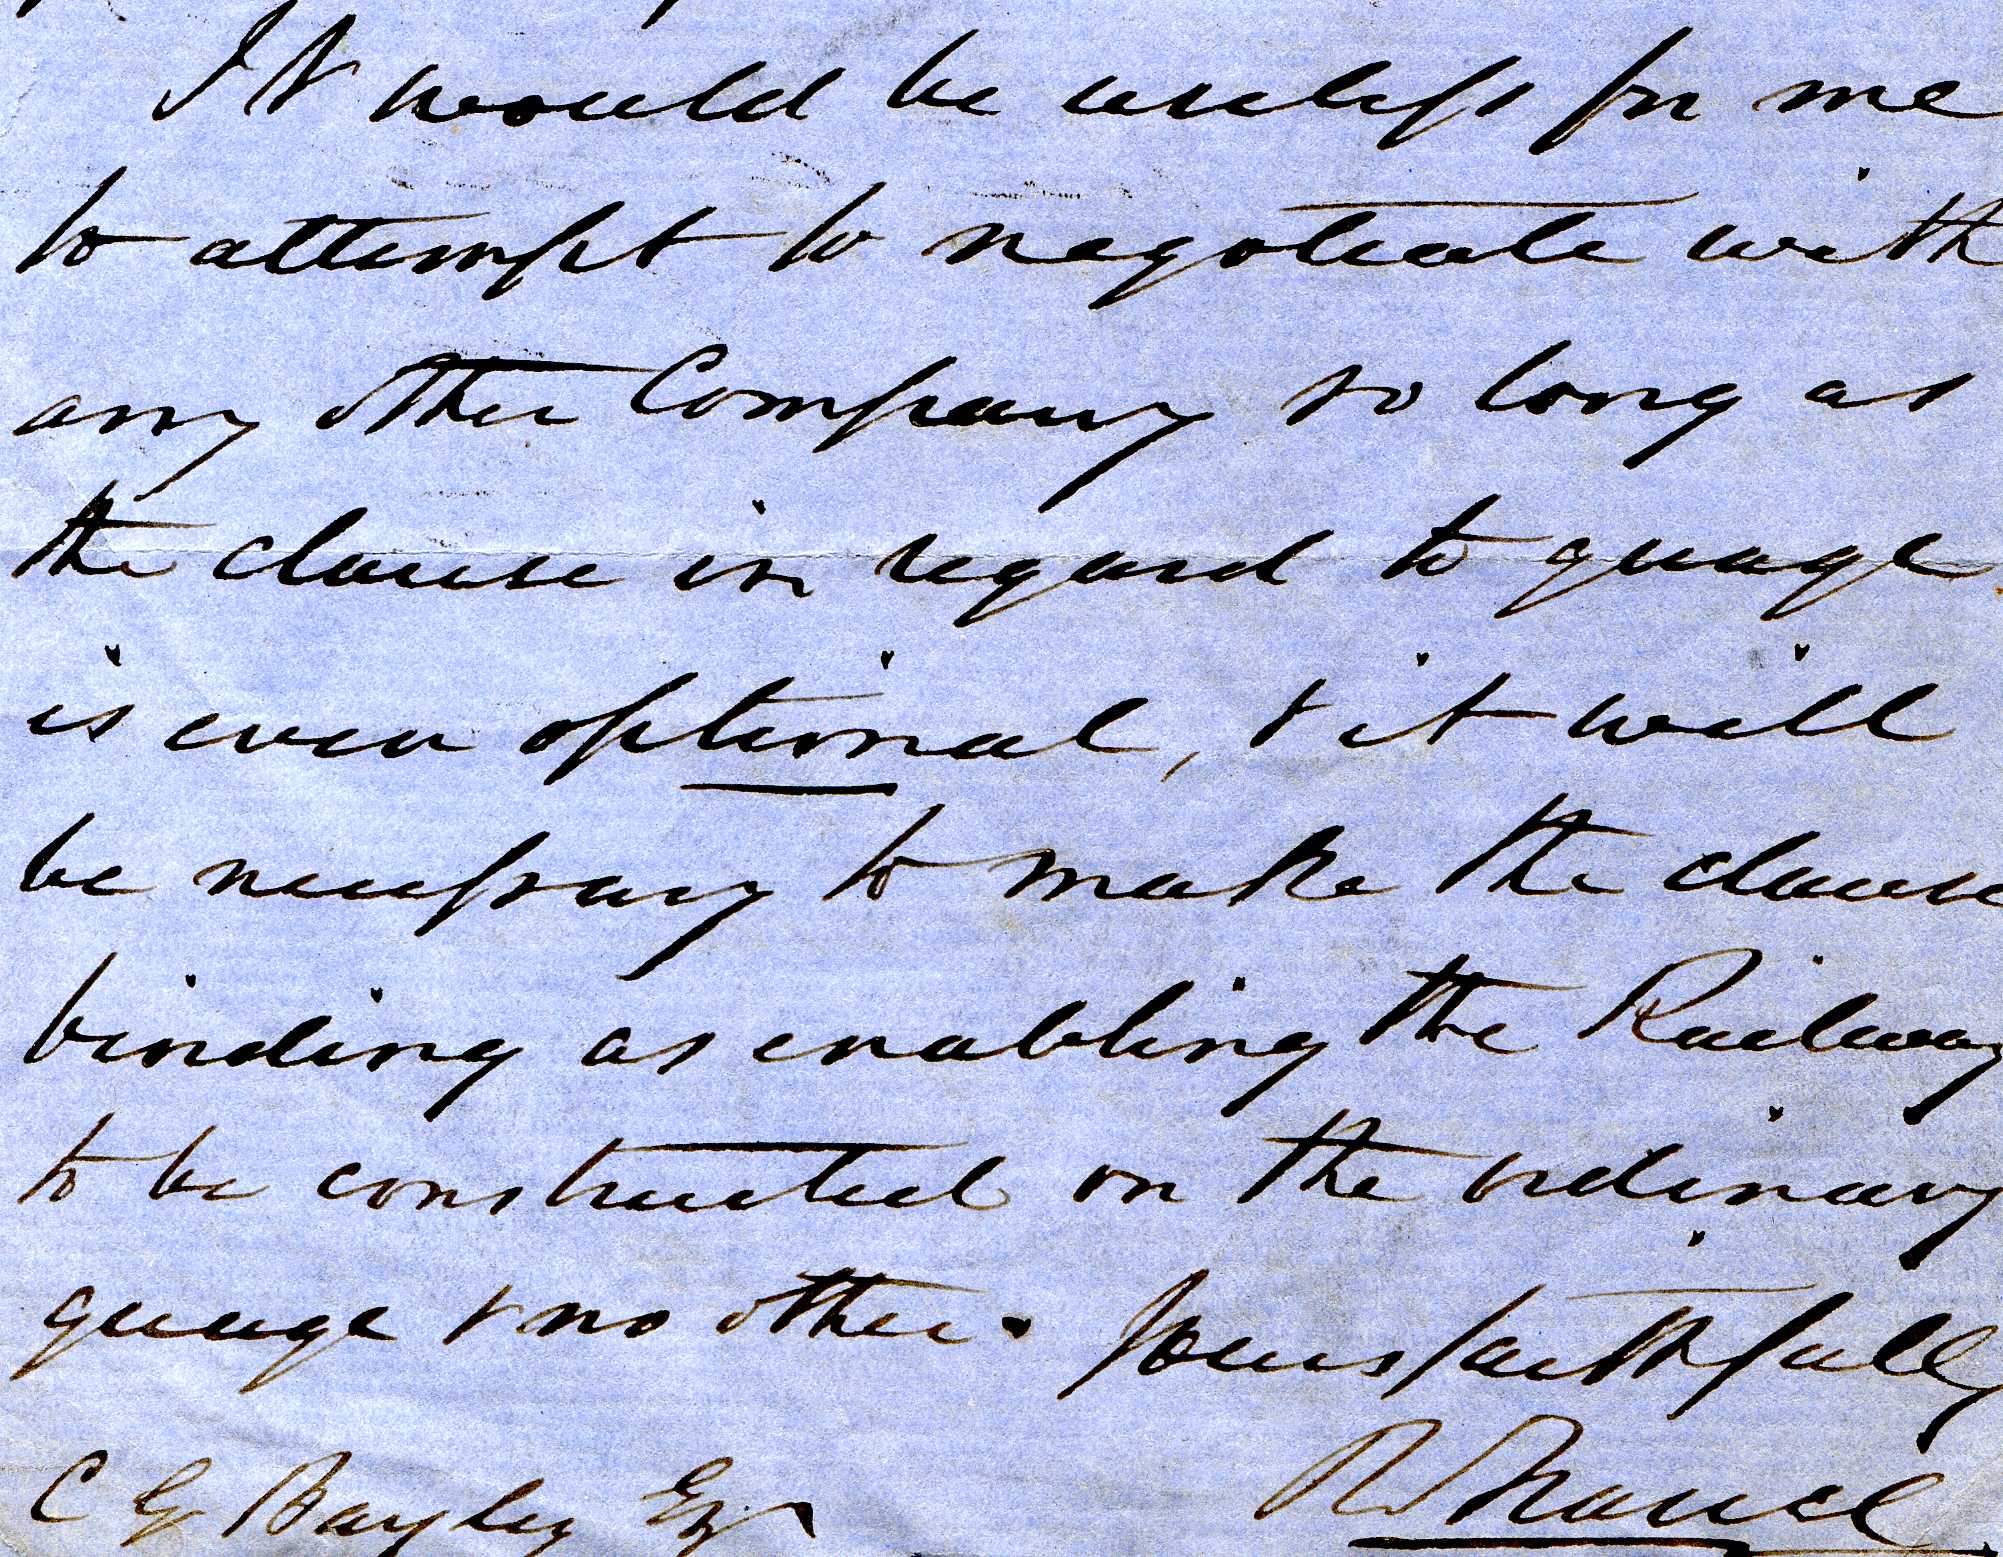 It would be useless for me
to attempt to negotiate with
any other Company so long as
the clause in regard to guage
is even optional, & it will
be necessary to make the clause
binding as enabling the Railway
to be constructed on the ordinary
guage & no other. Yours faithfully
C G Bayley Esqr